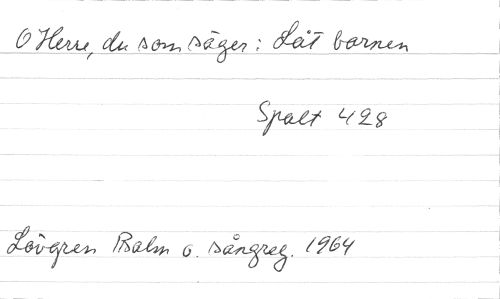 O Herre, du som säger: Låt barnen
Spalt 428
Lövgren Psalm o. sångreg. 1964